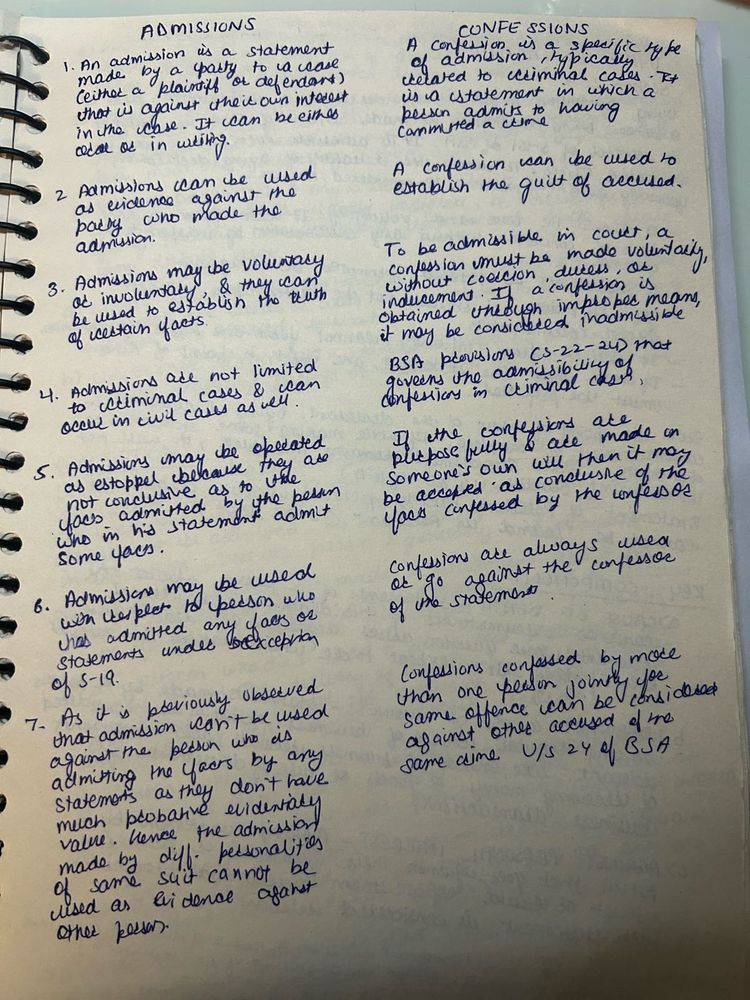 ADMISSIONS
1. An admission is a statement
made by a party to a case
(either a plaintiff or defendant)
that is against their own interest
in the case. It can be either
oral or in writing.
2 Admissions can be used
as evidence against the
party who made the
admission.
3. Admissions may be voluntary
or involuntary, & they can
be used to establish the truth
of certain facts.
4. Admissions are not limited
to criminal cases & can
occur in civil cases as well.
5. Admissions may be operated
as estoppel because they are
not conclusive as to the
facts admitted by the person
who in his statement admit
some facts.
6. Admissions may be used
with respect to person who
has admitted any facts or
statements under exception
of S-19.
7- As it is previously observed
that admission can't be used
against the person who is
admitting the facts by any
statements as they don't have
much probative evidentiary
value. Hence the admission
made by diff. personalities
of same suit cannot be
used as evidence against
other person.
CONFESSIONS
A confession is a specific type
of admission, typically
related to criminal cases. It
is a statement in which a
person admits to having
committed a crime
A confession can be used to
establish the guilt of accused.
To be admissible in court, a
confession must be made voluntarily,
without coercion, duress, or
inducement. If a confession is
obtained through improper means,
it may be considered inadmissible
BSA provisions (S-22-24) that
governs the admissibility of
confessions in criminal cases.
If the confessions are
purposefully & are made on
someone's own will then it may
be accepted as conclusive of the
facts confessed by the confessor
Confessions are always used
or go against the confessor
of the statements.
Confessions confessed by more
than one person jointly for
same offence can be considered
against other accused of the
same crime U/S 24 of BSA